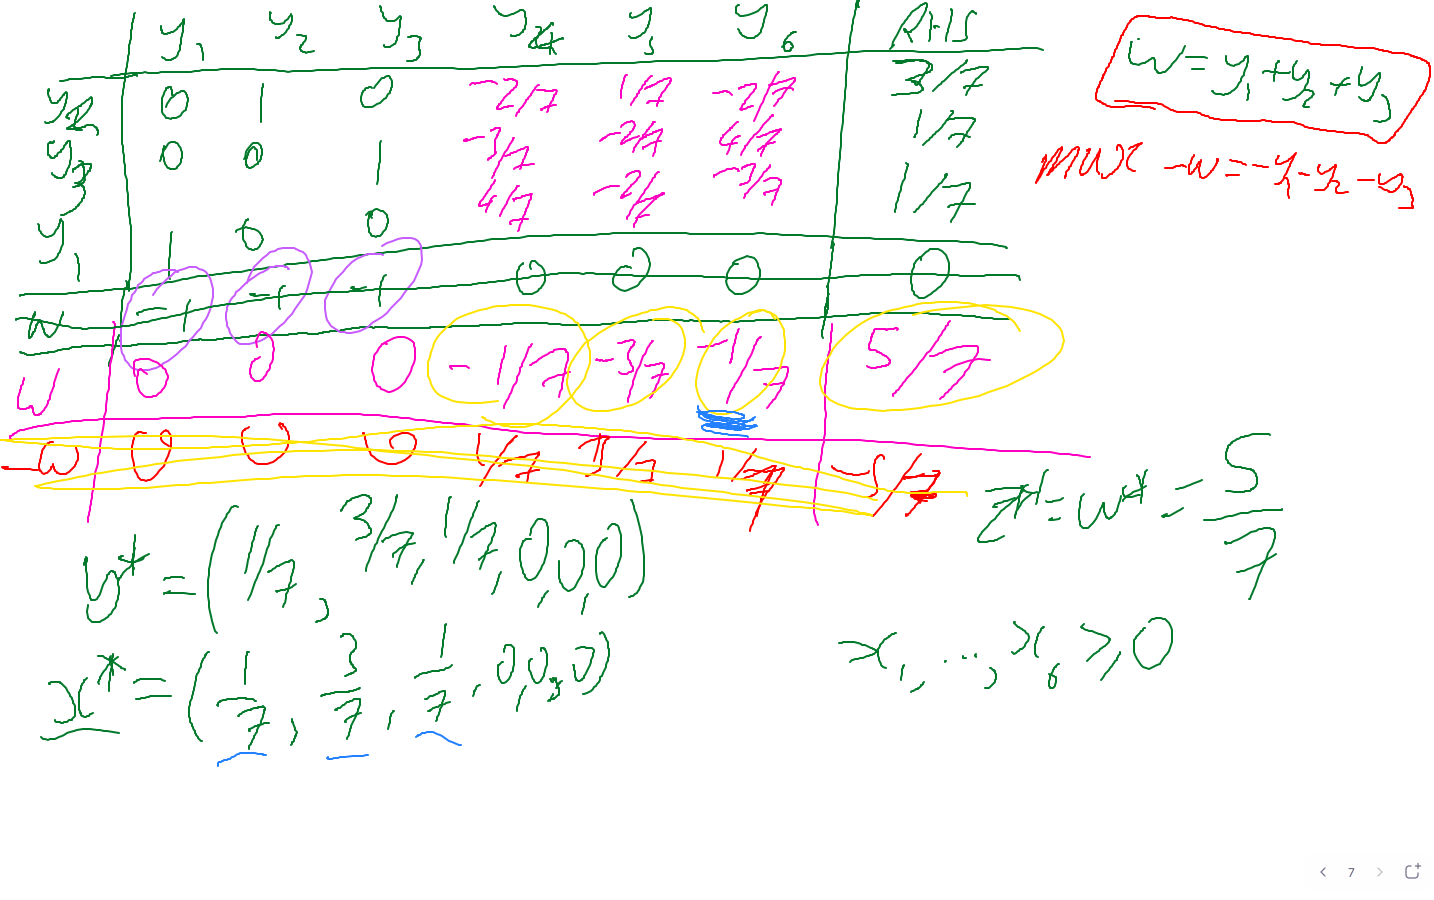 y₁ y₂ y₃ y₄ y₅ y₆ RHS
y₂ 0 1 0 -2/7 1/7 -2/7 3/7
y₃ 0 0 1 -3/7 -2/7 4/7 1/7
y₁ 1 0 0 4/7 -2/7 -3/7 1/7
w -1 -1 -1 0 0 0 0
w 0 0 0 -1/7 -3/7 -1/7 5/7
-w 0 0 0 1/7 3/7 1/7 -5/7
w = y₁ + y₂ + y₃
max -w = -y₁ - y₂ - y₃
z* = w* = 5/7
y* = (1/7, 3/7, 1/7, 0, 0, 0)
x* = (1/7, 3/7, 1/7, 0, 0, 0)
x₁, ..., x₆ ≥ 0
7